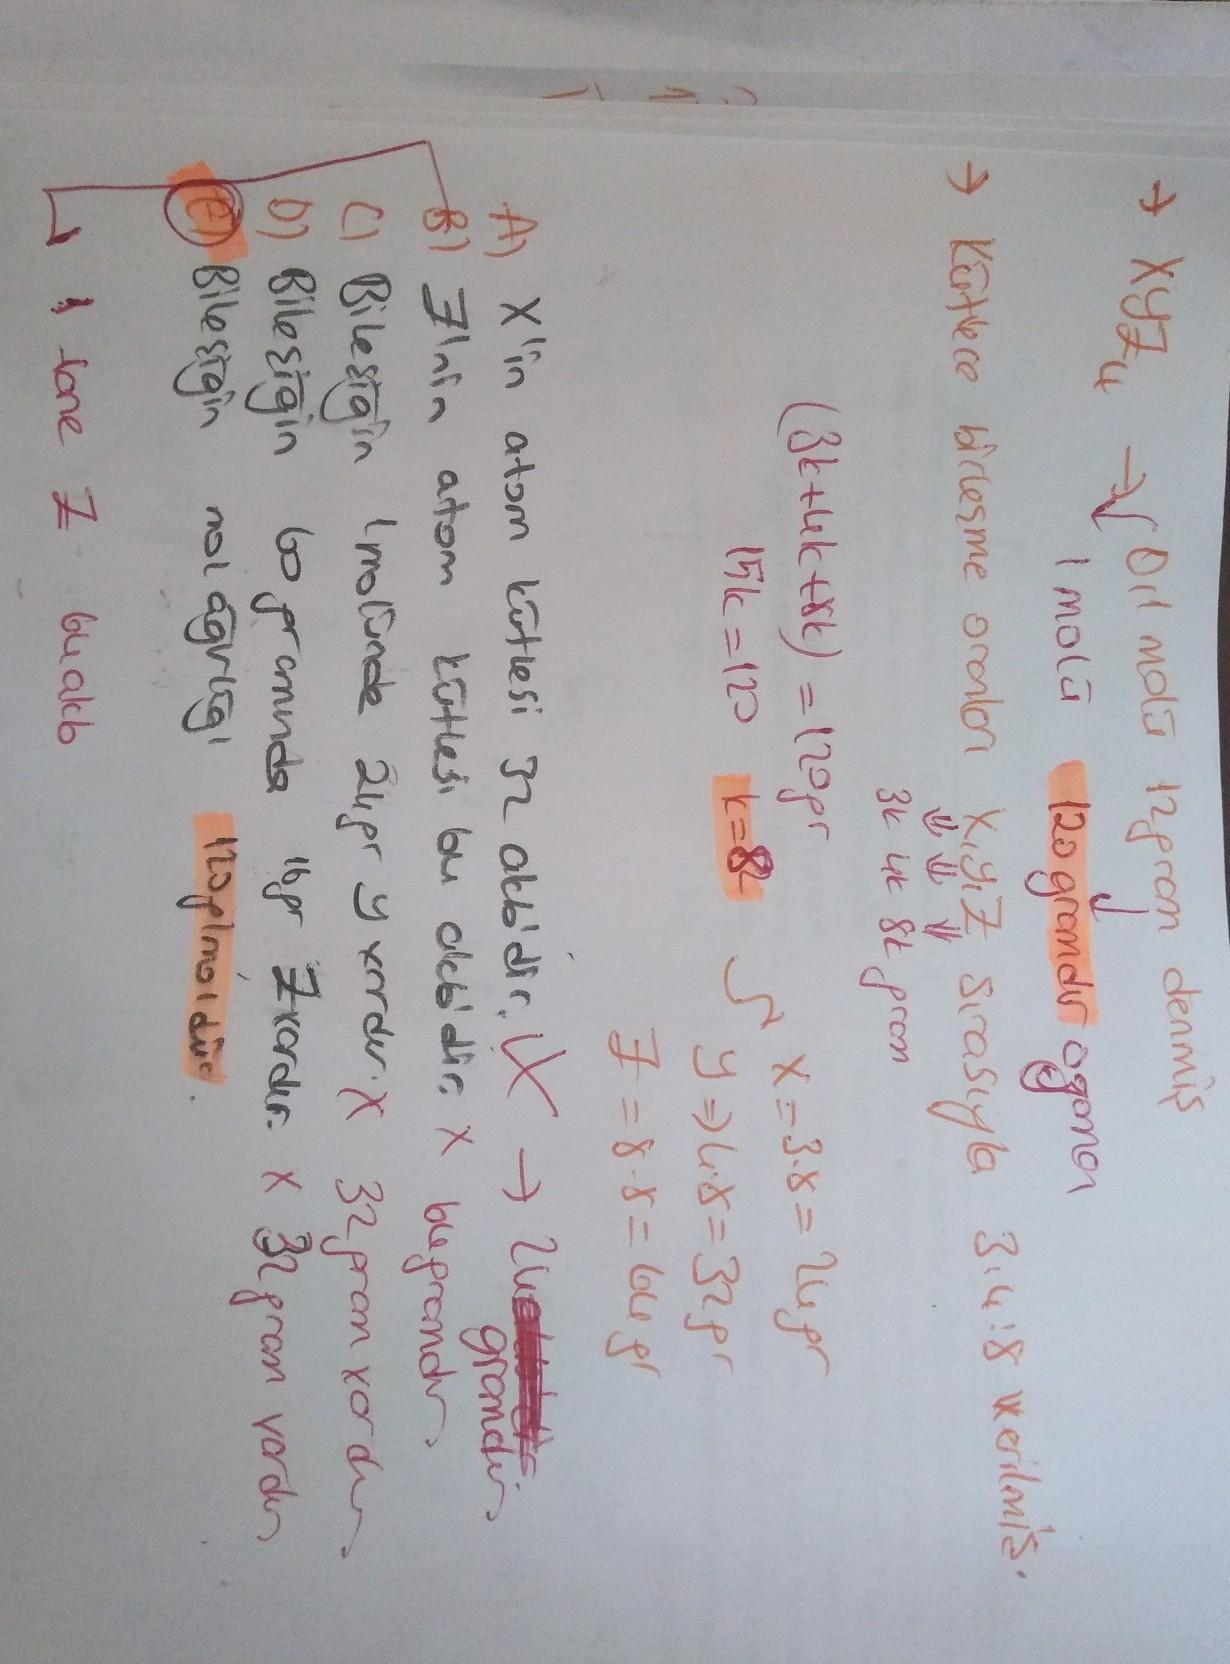 → XYZ₄ → 0,1 molü 12gram denmiş
1 molü 120 gramdır o zaman
→ Kütlece birleşme oranları X,Y,Z sırasıyla 3:4:8 verilmiş.
3k 4k 8k gram
(3k+4k+8k) = 120gr
15k = 120 k=8
X = 3.8 = 24gr
Y => 4.8 = 32 gr
Z = 8.8 = 64 gr
A) X'in atom kütlesi 32 akb'dir. X → 24 gramdır
B) Z'nin atom kütlesi 64 akb'dir. X 64 gramdır
C) Bileşiğin 1molünde 24gr Y vardır. X 32 gram vardır
D) Bileşiğin 60 gramında 16gr Z vardır. X 32 gram vardır
E) Bileşiğin mol ağırlığı 120g/mol dür.
4 tane Z 64 akb